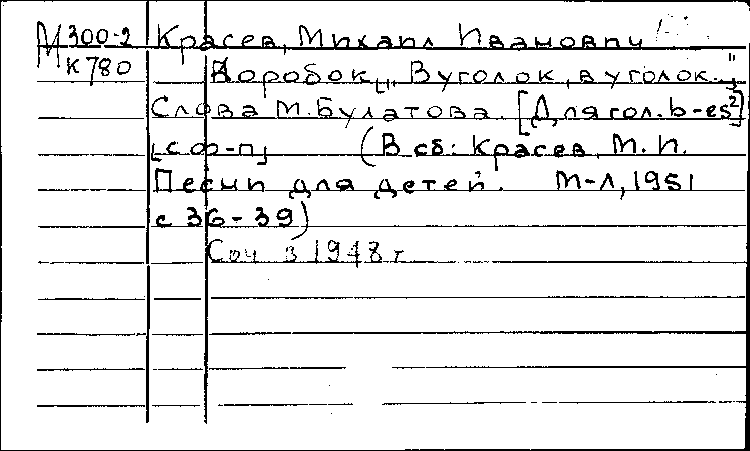 М 300-2 Красев, Михаил Иванович
К 780 Коробок [„В уголок, в уголок..."]
Слова М. Булатова. [Для гол. b-es²]
[с ф-п] (В сб: Красев, М. И.
Песни для детей. М-Л, 1951
с 36-39)
Соч в 1948 г